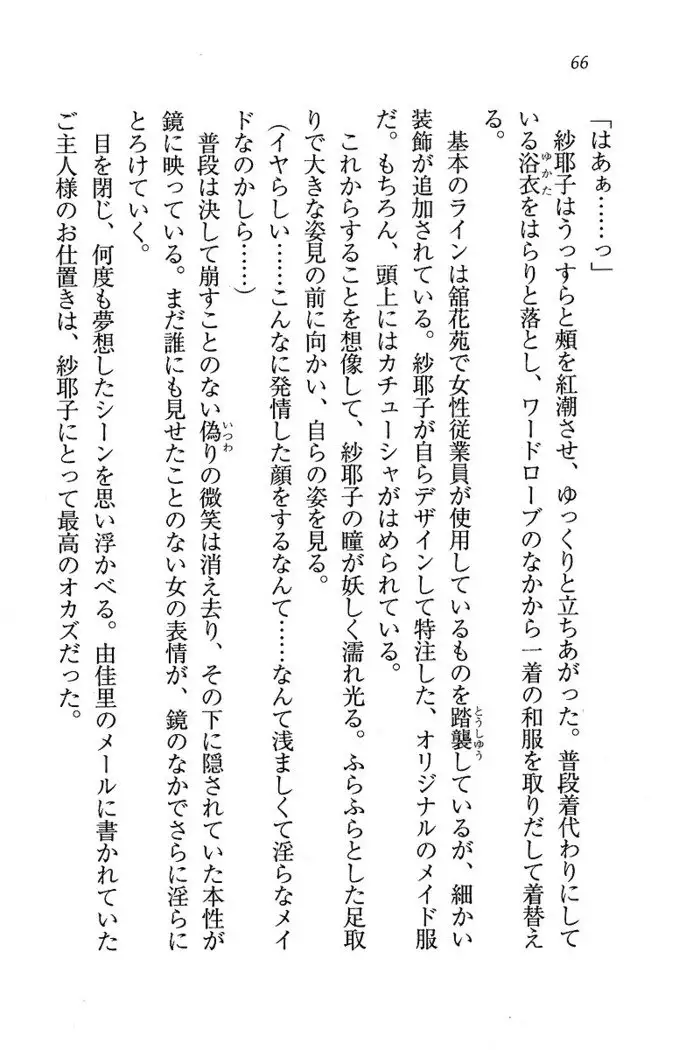 66
「はあぁ……っ」
　紗耶子はうっすらと頰を紅潮させ、ゆっくりと立ちあがった。普段着代わりにして
いる浴衣をはらりと落とし、ワードローブのなかから一着の和服を取りだして着替え
る。
　基本のラインは舘花苑で女性従業員が使用しているものを踏襲しているが、細かい
装飾が追加されている。紗耶子が自らデザインして特注した、オリジナルのメイド服
だ。もちろん、頭上にはカチューシャがはめられている。
　これからすることを想像して、紗耶子の瞳が妖しく濡れ光る。ふらふらとした足取
りで大きな姿見の前に向かい、自らの姿を見る。
（イヤらしい……こんなに発情した顔をするなんて……なんて浅ましくて淫らなメイ
ドなのかしら……）
　普段は決して崩すことのない偽りの微笑は消え去り、その下に隠されていた本性が
鏡に映っている。まだ誰にも見せたことのない女の表情が、鏡のなかでさらに淫らに
とろけていく。
　目を閉じ、何度も夢想したシーンを思い浮かべる。由佳里のメールに書かれていた
ご主人様のお仕置きは、紗耶子にとって最高のオカズだった。